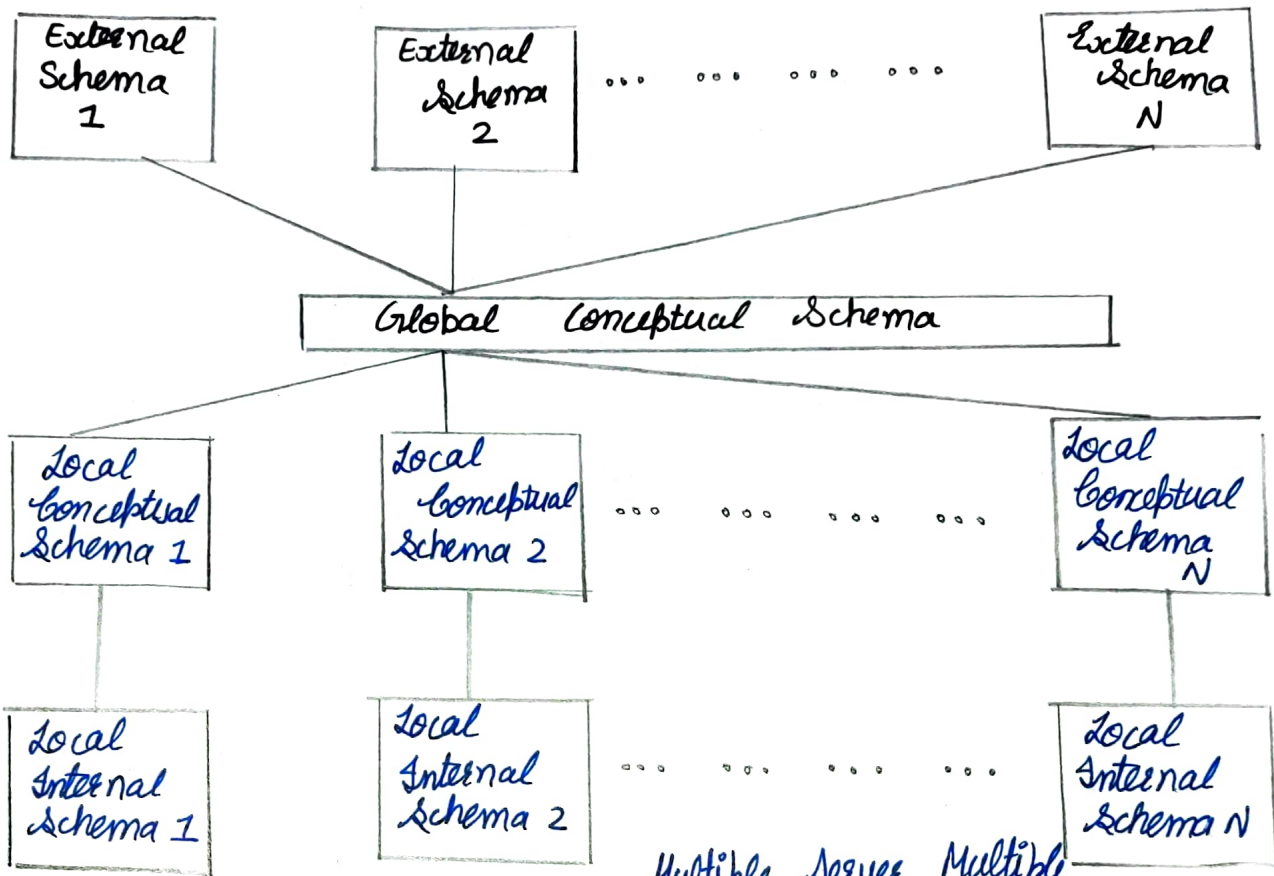 External
Schema
1
External
Schema
2
External
Schema
N
Global Conceptual Schema
Local
Conceptual
Schema 1
Local
Conceptual
Schema 2
Local
Conceptual
Schema
N
Local
Internal
Schema 1
Local
Internal
Schema 2
Local
Internal
Schema N
Multiple Server Multiple